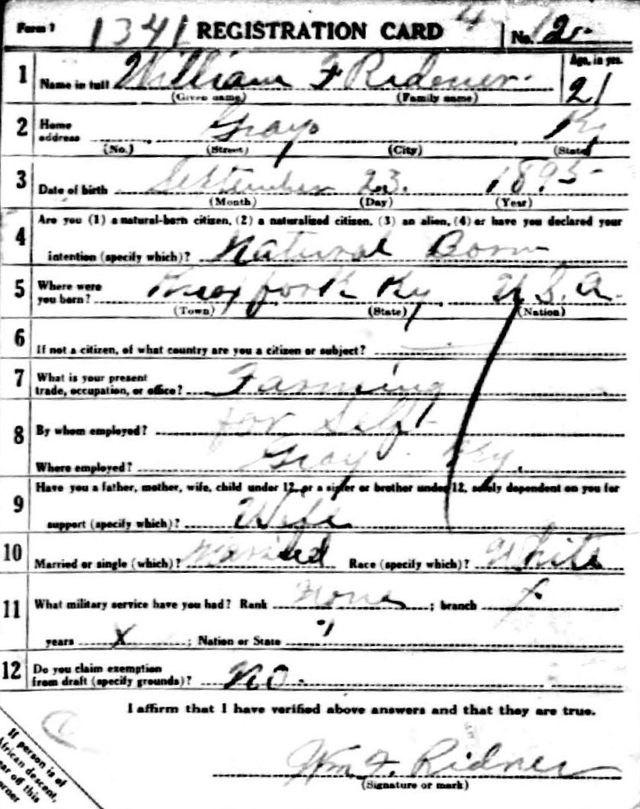 Form 1 1341 REGISTRATION CARD No. 12
1 Name in full William F Ridener Age, in yrs. 21
(Given name) (Family name)
2 Home address Grays Ky
(No.) (Street) (City) (State)
3 Date of birth September 23. 1895
(Month) (Day) (Year)
Are you (1) a natural-born citizen, (2) a naturalized citizen, (3) an alien, (4) or have you declared your
4 intention (specify which)? Natural Born
5 Where were you born? fork Ky U.S.A.
(Town) (State) (Nation)
6 If not a citizen, of what country are you a citizen or subject?
7 What is your present trade, occupation, or office? Farming
8 By whom employed? for Self
Where employed? Gray Ky.
9 Have you a father, mother, wife, child under 12, or a sister or brother under 12, solely dependent on you for
support (specify which)? Wife
10 Married or single (which)? Married Race (specify which)? White
11 What military service have you had? Rank None ; branch
years x ; Nation or State
12 Do you claim exemption from draft (specify grounds)? No.
I affirm that I have verified above answers and that they are true.
Wm F. Ridner
(Signature or mark)
If person is of
African descent,
tear off this
corner